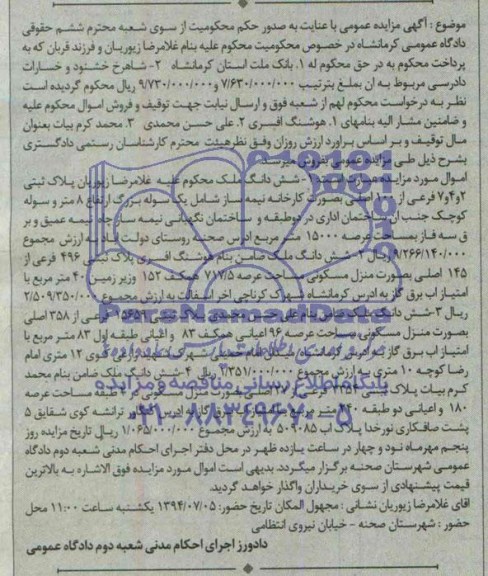 موضوع : آگهی مزایده عمومی با عنایت به صدور حکم محکومیت از سوی شعبه محترم ششم حقوقی
دادگاه عمومی کرمانشاه در خصوص محکومیت محکوم علیه بنام غلامرضا زیوریان و فرزند قربان که به
پرداخت محکوم به در حق محکوم له ۱. بانک ملت استان کرمانشاه ۲- شاهرخ خشنود و خسارات
دادرسی مربوط به ان بملغ بترتیب ۷/۶۳۰/۰۰۰/۰۰۰ و ۹/۷۳۰/۰۰۰/۰۰۰ ریال محکوم گردیده است
نظر به درخواست محکوم لهم از شعبه فوق و ارسال نیابت جهت توقیف و فروش اموال محکوم علیه
و ضامنین مشار الیه بنامهای ۱. هوشنگ افسری ۲. علی حسن محمدی ۳. محمد کرم بیات بعنوان
مال توقیف و بر اساس براورد ارزش روزان وفق نظر هیئت محترم کارشناسان رسمی دادگستری
بشرح ذیل طی مزایده عمومی بفروش میرسد
اموال مورد مزایده ۱- شش دانگ ملک محکوم علیه غلامرضا زیوریان پلاک ثبتی
۲و۴و۷ فرعی از اصلی بصورت کارخانه نیمه ساز شامل یک سوله بزرگ ارتفاع ۸ متر و سوله
کوچک جنب آن ساختمان اداری در دو طبقه و ساختمان نگهبانی نیمه ساز چاه نیمه عمیق و بر
ق سه فاز بمساحت عرصه ۱۵۰۰۰ متر مربع ادرس صحنه روستای دولت آباد به ارزش مجموع
۹/۲۶۶/۱۴۰/۰۰۰ ریال ۲- شش دانگ ملک ضامن بنام هوشنگ افسری پلاک ثبتی ۴۹۶ فرعی از
۱۴۵ اصلی بصورت منزل مسکونی مساحت عرصه ۷۱۷/۵ همکف ۱۵۲ وزیر زمین ۴۰ متر مربع با
امتیاز اب برق گاز به ادرس کرمانشاه شهرک کرناچی اخر اسفالت به ارزش مجموع ۲/۵۰۹/۳۵۰/۰۰۰
ریال ۳-شش دانگ ملک ضامن بنام علی حسن محمدی پلاک ثبتی فرعی از ۳۵۸ اصلی
بصورت منزل مسکونی مساحت عرصه ۹۶ اعیانی همکف ۸۳ و اعیانی طبقه اول ۸۳ متر مربع با
امتیاز اب برق گاز به ادرس کرمانشاه کوی ۱۲ متری امام
رضا کوچه ۱۰ متری به ارزش مجموع ۲/۳۵۱/۰۰۰/۰۰۰ ریال ۴-شش دانگ ملک ضامن بنام محمد
کرم بیات پلاک ثبتی فرعی از اصلی بصورت منزل مسکونی در ۲ طبقه مساحت عرصه
۱۸۰ و اعیانی دو طبقه ۲۴۰ متر مربع با امتیاز اب برق گاز ادرس کنگاور ترانشه کوی شقایق ۵
پشت صافکاری نورخدا پلاک اب ۵۰۹۰۸۵ به ارزش مجموع ۱/۰۶۵/۰۰۰/۰۰۰ ریال تاریخ مزایده روز
پنجم مهرماه نود و چهار در ساعت یازده ظهر در محل دفتر اجرای احکام مدنی شعبه دوم دادگاه
عمومی شهرستان صحنه برگزار میگردد. بدیهی است اموال مورد مزایده فوق الاشاره به بالاترین
قیمت پیشنهادی از سوی خریداران واگذار خواهد گردید.
اقای غلامرضا زیوریان نشانی : مجهول المکان تاریخ حضور: ۱۳۹۴/۰۷/۰۵ یکشنبه ساعت ۱۱:۰۰ محل
حضور : شهرستان صحنه - خیابان نیروی انتظامی
دادورز اجرای احکام مدنی شعبه دوم دادگاه عمومی
پایگاه اطلاع رسانی مناقصه و مزایده
۰۲۱-۸۸۳۴۹۶۷۰-۵